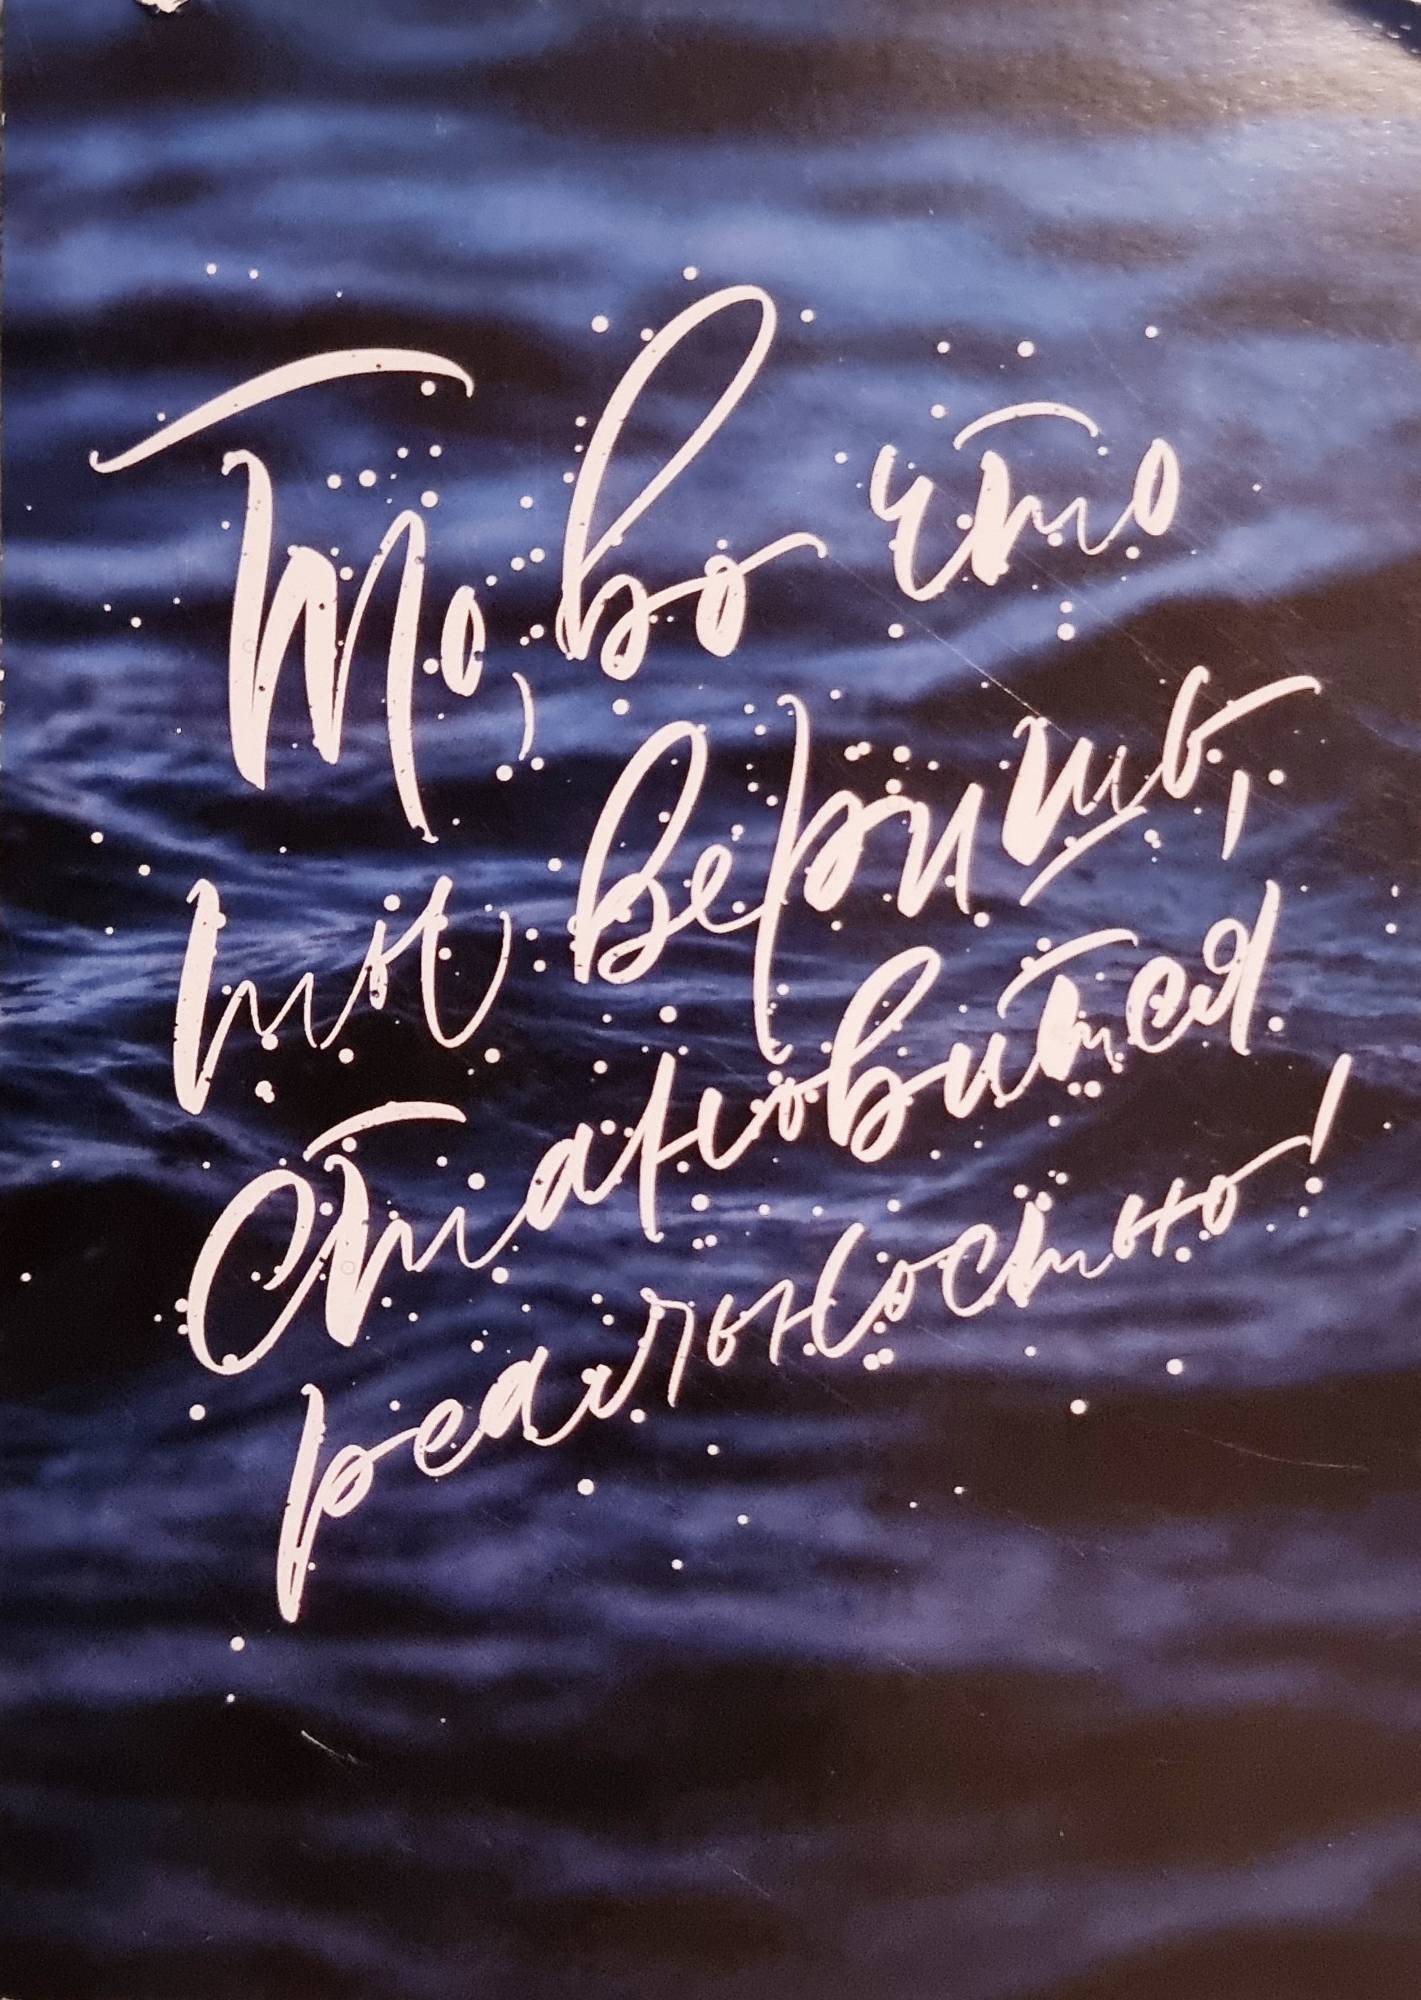 То, во что
ты веришь,
становится
реальностью!